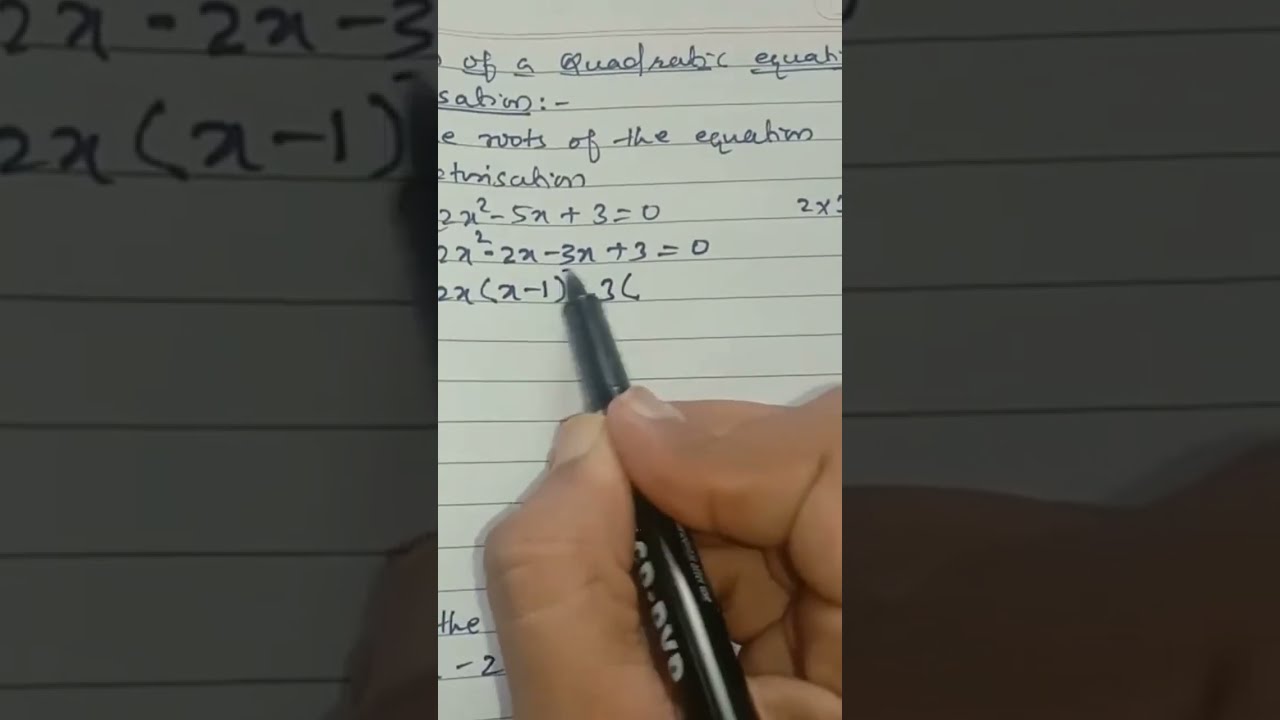 of a Quadratic equati
sation:-
e roots of the equation
torisation
2x² - 5x + 3 = 0 2x3
2x² - 2x - 3x + 3 = 0
2x(x-1) - 3(
the
-2